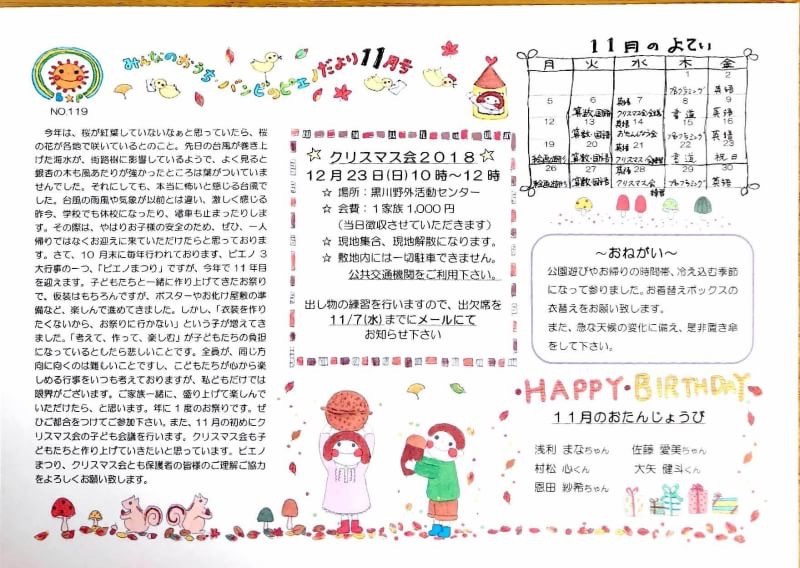 みんなのおうち・バンビのピエノだより11月号
NO.119
今年は、桜が紅葉していないなぁと思っていたら、桜
の花が各地で咲いているとのこと。先日の台風が巻き上
げた海水が、街路樹に影響しているようで、よく見ると
銀杏の木も風あたりが強かったところは葉がついていま
せんでした。それにしても、本当に怖いと感じる台風で
した。台風の雨風や気象が以前とは違い、激しく感じる
昨今、学校でも休校になったり、電車も止まったりしま
す。その際は、やはりお子様の安全のため、ぜひ、一人
帰りではなくお迎えに来ていただけたらと思っておりま
す。さて、10月末に毎年行われております、ピエノ3
大行事の一つ、「ピエノまつり」ですが、今年で11年目
を迎えます。子どもたちと一緒に作り上げてきたお祭り
で、仮装はもちろんですが、ポスターやお化け屋敷の準
備など、楽しんで進めてきました。しかし、「衣装を作り
たくないから、お祭りに行かない」という子が増えてき
ました。「考えて、作って、楽しむ」が子どもたちの負担
になっているとしたら悲しいことです。全員が、同じ方
向に向くのは難しいことですし、こどもたちが心から楽
しめる行事をいつも考えておりますが、私どもだけでは
限界がございます。ご家族一緒に、盛り上げて楽しんで
いただけたら、と思います。年に1度のお祭りです。ぜ
ひご都合をつけてご参加下さい。また、11月の初めにク
リスマス会の子ども会議を行います。クリスマス会も子
どもたちと作り上げていきたいと思っています。ピエノ
まつり、クリスマス会とも保護者の皆様のご理解ご協力
をよろしくお願い致します。
☆ クリスマス会2018 ☆
12月23日(日)10時～12時
☆ 場所：黒川野外活動センター
☆ 会費：1家族1,000円
（当日徴収させていただきます）
☆ 現地集合、現地解散になります。
☆ 敷地内には一切駐車できません。
公共交通機関をご利用下さい。
出し物の練習を行いますので、出欠席を
11/7(水)までにメールにて
お知らせ下さい
11月のよてい
月 火 水 木 金
1 2
プログラミング 英語
5 6 7 8 9
算数・国語 英語 クリスマス会会議 書道 英語
12 13 14 15 16
算数・国語 英語 おせんべつ会 プログラミング 英語
19 20 21 22 23
算数・国語 英語 書道 祝日
26 27 28 29 30
算数・国語 英語 クリスマス会 プログラミング 英語
～おねがい～
公園遊びやお帰りの時間帯、冷え込む季節
になって参りました。お着替えボックスの
衣替えをお願い致します。
また、急な天候の変化に備え、是非置き傘
をして下さい。
HAPPY・BIRTHDAY
11月のおたんじょうび
浅利 まなちゃん 佐藤 愛美ちゃん
村松 心くん 大矢 健斗くん
恩田 紗希ちゃん